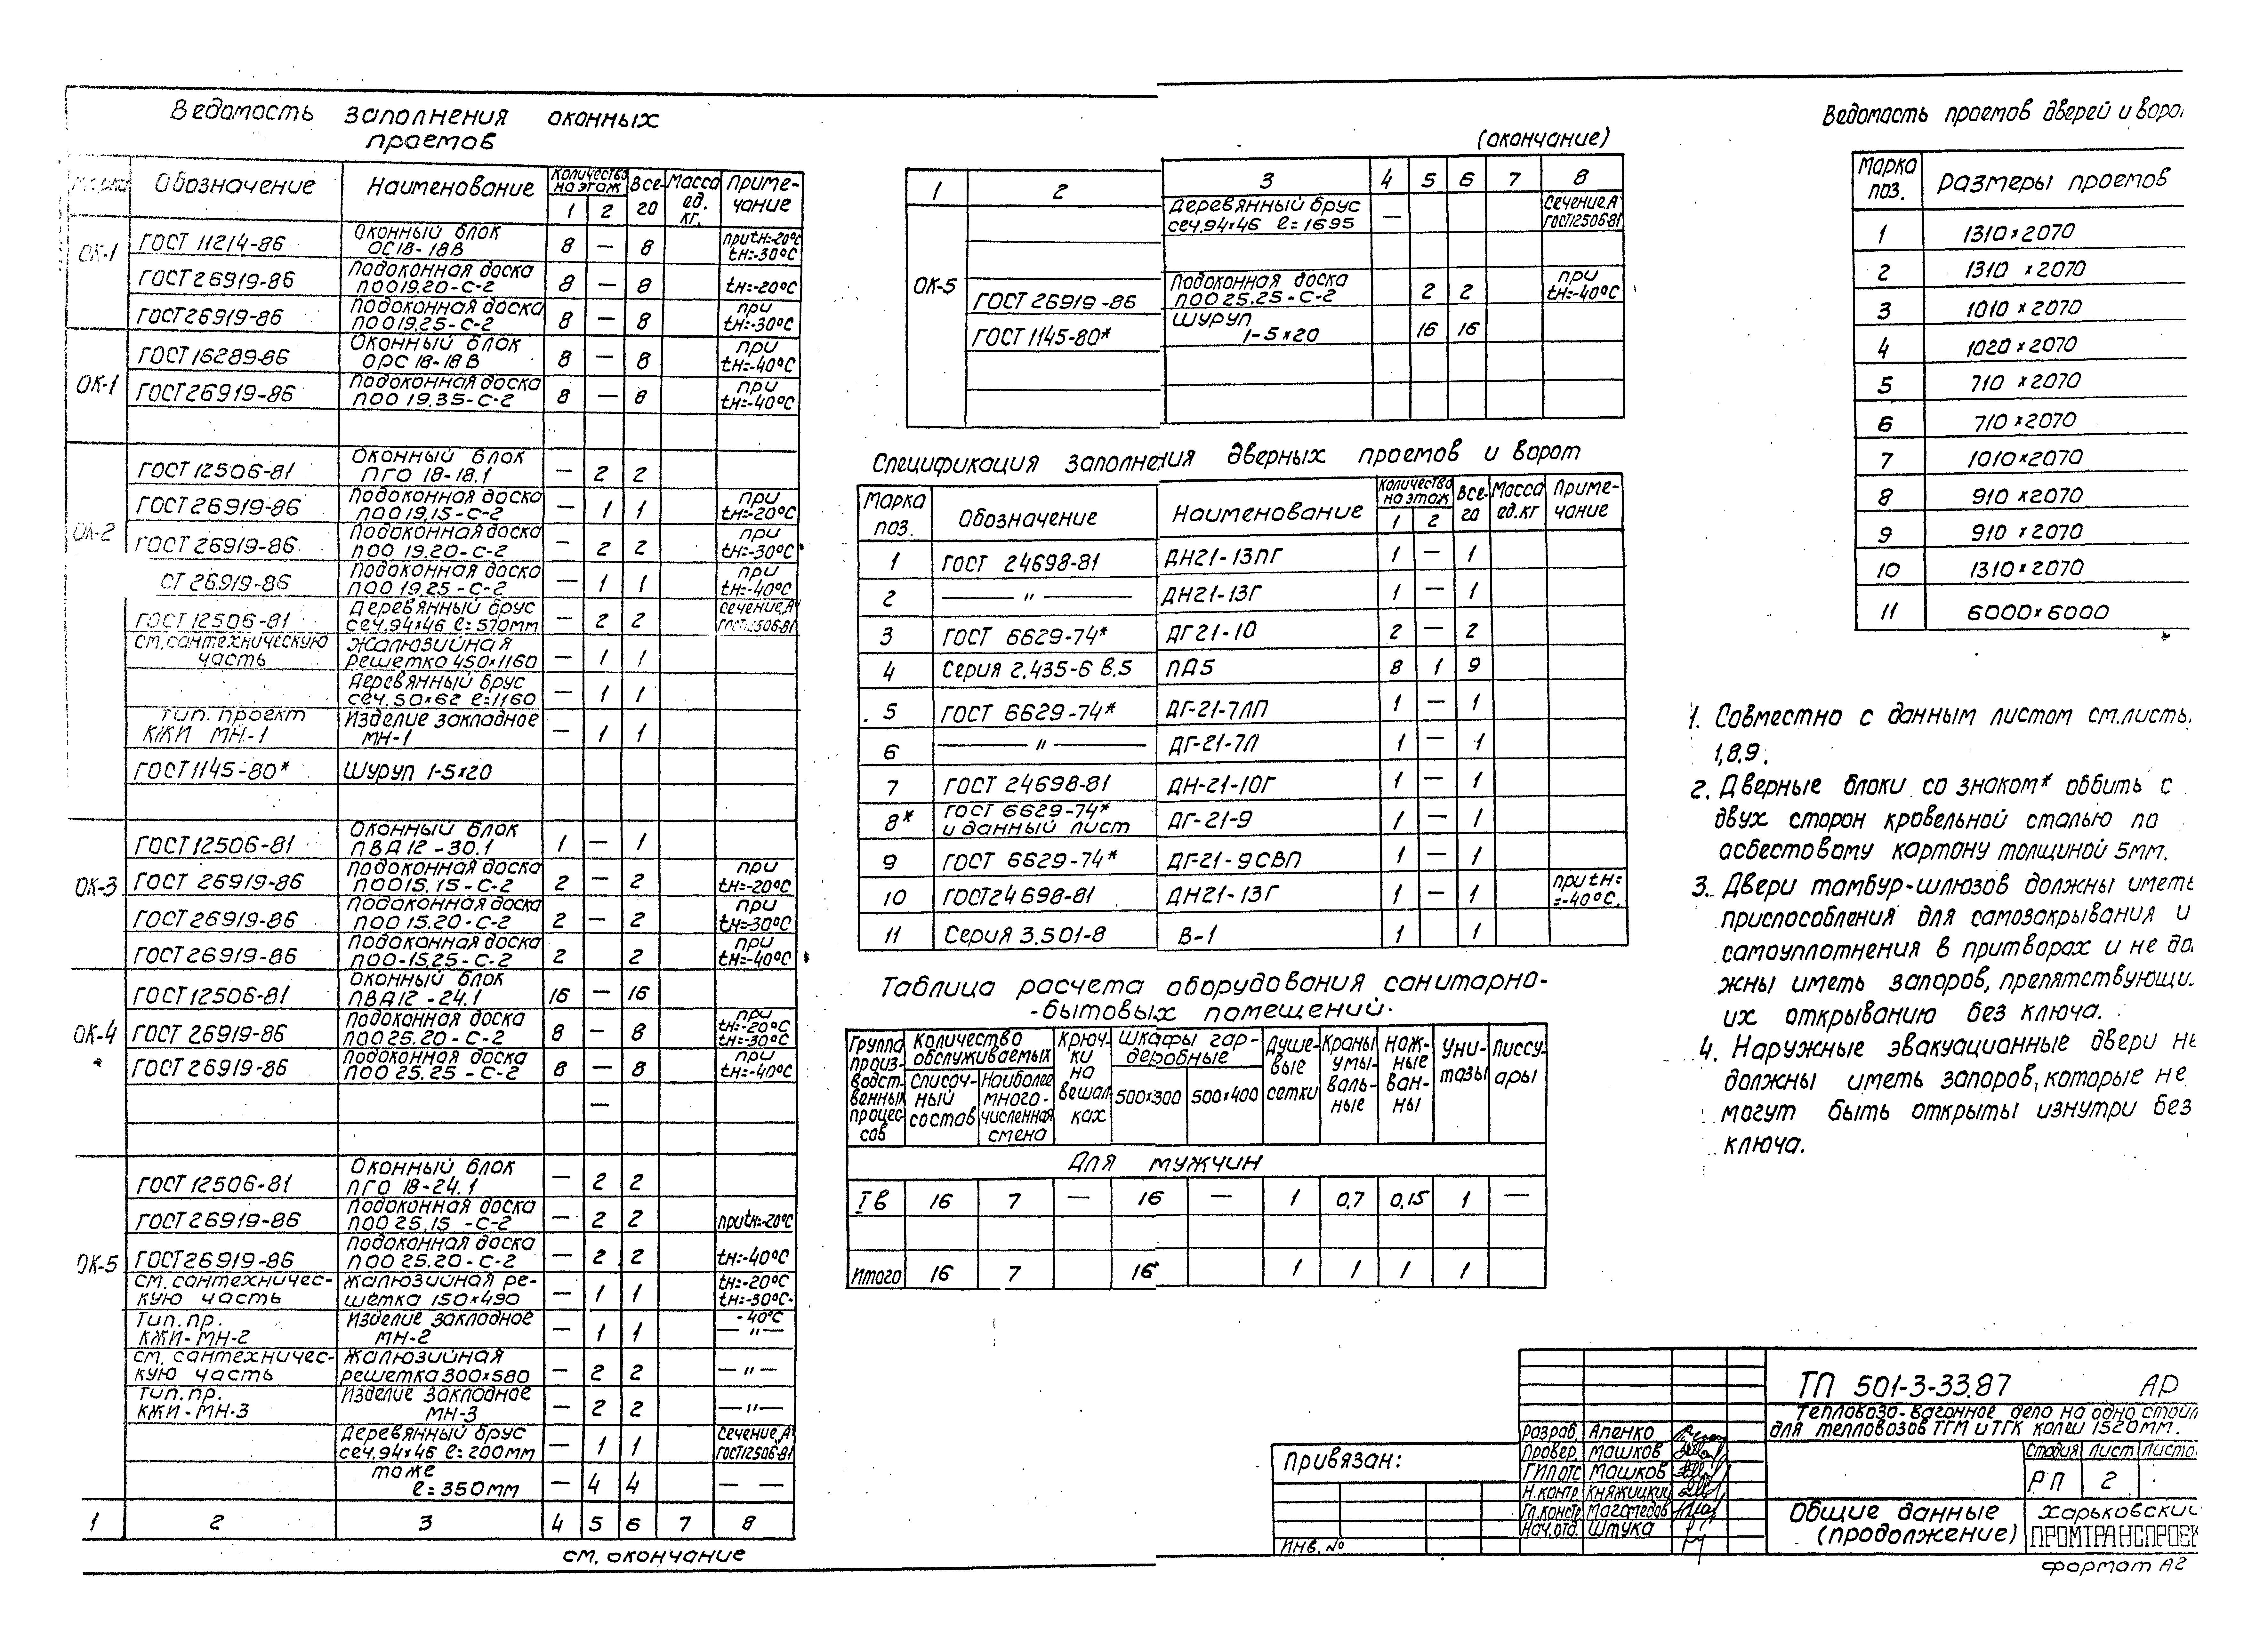 Ведомость заполнения оконных
проемов
Марка Обозначение Наименование Количество на этаж Все-го Масса ед. кг. Приме-чание
1 2
ОК-1 ГОСТ 11214-86 Оконный блок ОС18-18В 8 — 8 при tн=-20°С tн=-30°С
ГОСТ 26919-86 Подоконная доска ПОО19.20-С-2 8 — 8 tн=-20°С
ГОСТ 26919-86 Подоконная доска ПОО19.25-С-2 8 — 8 при tн=-30°С
ОК-1 ГОСТ 16289-86 Оконный блок ОРС 18-18В 8 — 8 при tн=-40°С
ГОСТ 26919-86 Подоконная доска ПОО 19.35-С-2 8 — 8 при tн=-40°С
ОК-2 ГОСТ 12506-81 Оконный блок ПГО 18-18.1 — 2 2
ГОСТ 26919-86 Подоконная доска ПОО19.15-С-2 — 1 1 при tн=-20°С
ГОСТ 26919-86 Подоконная доска ПОО 19.20-С-2 — 2 2 при tн=-30°С
СТ 26919-86 Подоконная доска ПОО 19.25-С-2 — 1 1 при tн=-40°С
ГОСТ 12506-81 Деревянный брус сеч.94×46 ℓ=570мм — 2 2 Сечение„А" ГОСТ12506-81
см.сантехническую часть Жалюзийная решетка 450×1160 — 1 1
Деревянный брус сеч.50×62 ℓ=1160 — 1 1
Тип. проект КЖИ МН-1 Изделие закладное МН-1 — 1 1
ГОСТ1145-80* Шуруп 1-5×20
ОК-3 ГОСТ12506-81 Оконный блок ПВД12-30.1 1 — 1
ГОСТ 26919-86 Подоконная доска ПОО15.15-С-2 2 — 2 при tн=-20°С
ГОСТ 26919-86 Подоконная доска ПОО 15.20-С-2 2 — 2 при tн=-30°С
ГОСТ 26919-86 Подоконная доска ПОО-15.25-С-2 2 2 при tн=-40°С
ОК-4 * ГОСТ12506-81 Оконный блок ПВД12-24.1 16 — 16
ГОСТ 26919-86 Подоконная доска ПОО25.20-С-2 8 — 8 при tн=-20°С tн=-30°С
ГОСТ 26919-86 Подоконная доска ПОО 25.25-С-2 8 — 8 при tн=-40°С
—
ОК-5 ГОСТ 12506-81 Оконный блок ПГО 18-24.1 — 2 2
ГОСТ 26919-86 Подоконная доска ПОО 25.15-С-2 — 2 2 при tн=-20°С
ГОСТ 26919-86 Подоконная доска ПОО 25.20-С-2 — 2 2 tн=-40°С
см. сантехничес-кую часть Жалюзийная ре-шетка 150×490 — 1 1 tн=-20°С tн=-30°С
Тип. пр. КЖИ-МН-2 Изделие закладное МН-2 — 1 1 -40°С —"—
см. сантехничес-кую часть Жалюзийная решетка 300×580 — 2 2 —"—
Тип. пр. КЖИ-МН-3 Изделие закладное МН-3 — 2 2 —"—
Деревянный брус сеч.94×46 ℓ=200мм — 1 1 Сечение„А" ГОСТ12506-81
тоже ℓ=350мм — 4 4 — —
1 2 3 4 5 6 7 8
см. окончание
(окончание)
1 2 3 4 5 6 7 8
ОК-5 Деревянный брус сеч.94×46 ℓ=1695 — Сечение„А" ГОСТ12506-81
ГОСТ 26919-86 Подоконная доска ПОО 25.25-С-2 2 2 при tн=-40°С
ГОСТ 1145-80* Шуруп 1-5×20 16 16
Спецификация заполнения дверных проемов и ворот
Марка поз. Обозначение Наименование Количество на этаж Все-го Масса ед.кг Приме-чание
1 2
1 ГОСТ 24698-81 ДН21-13ПГ 1 — 1
2 —"— ДН21-13Г 1 — 1
3 ГОСТ 6629-74* ДГ21-10 2 — 2
4 Серия 2.435-6 В.5 ПД5 8 1 9
5 ГОСТ 6629-74* ДГ-21-7ЛП 1 — 1
6 —"— ДГ-21-7Л 1 — 1
7 ГОСТ 24698-81 ДН-21-10Г 1 — 1
8* ГОСТ 6629-74* и данный лист ДГ-21-9 1 — 1
9 ГОСТ 6629-74* ДГ-21-9СВП 1 — 1
10 ГОСТ24698-81 ДН21-13Г 1 — 1 при tн= =-40°С.
11 Серия 3.501-8 В-1 1 1
Таблица расчета оборудования санитарно-
-бытовых помещений.
Группа произ-водст-венных процес-сов Количество обслуживаемых Крюч-ки на вешал-ках Шкафы гар-деробные Душе-вые сетки Краны умы-валь-ные Нож-ные ван-ны Уни-тазы Писсу-ары
Списоч-ный состав Наиболее много-численная смена 500×300 500×400
Для мужчин
Iв 16 7 — 16 — 1 0,7 0,15 1 —
Итого 16 7 16 1 1 1 1
Ведомость проемов дверей и ворот
Марка поз. Размеры проемов
1 1310×2070
2 1310×2070
3 1010×2070
4 1020×2070
5 710×2070
6 710×2070
7 1010×2070
8 910×2070
9 910×2070
10 1310×2070
11 6000×6000
1. Совместно с данным листом см.листы
1,8,9.
2. Дверные блоки со знаком* оббить с
двух сторон кровельной сталью по
асбестовому картону толщиной 5мм.
3. Двери тамбур-шлюзов должны иметь
приспособления для самозакрывания и
самоуплотнения в притворах и не до
жны иметь запоров, препятствующи
их открыванию без ключа.
4. Наружные эвакуационные двери не
должны иметь запоров, которые не
могут быть открыты изнутри без
ключа.
Привязан:
Инв. №
Разраб. Апенко
Провер. Машков
ГИП отс Машков
Н.контр Княжицкий
Гл.констр Магомедов
Нач.отд. Штука
ТП 501-3-33.87 АР
Тепловозо-вагонное депо на одно стойл
для тепловозов ТГМ и ТГК колеи 1520мм.
Стадия Лист Листо
РП 2
Общие данные
(продолжение)
Харьковский
ПРОМТРАНСПРОЕК
Формат А2